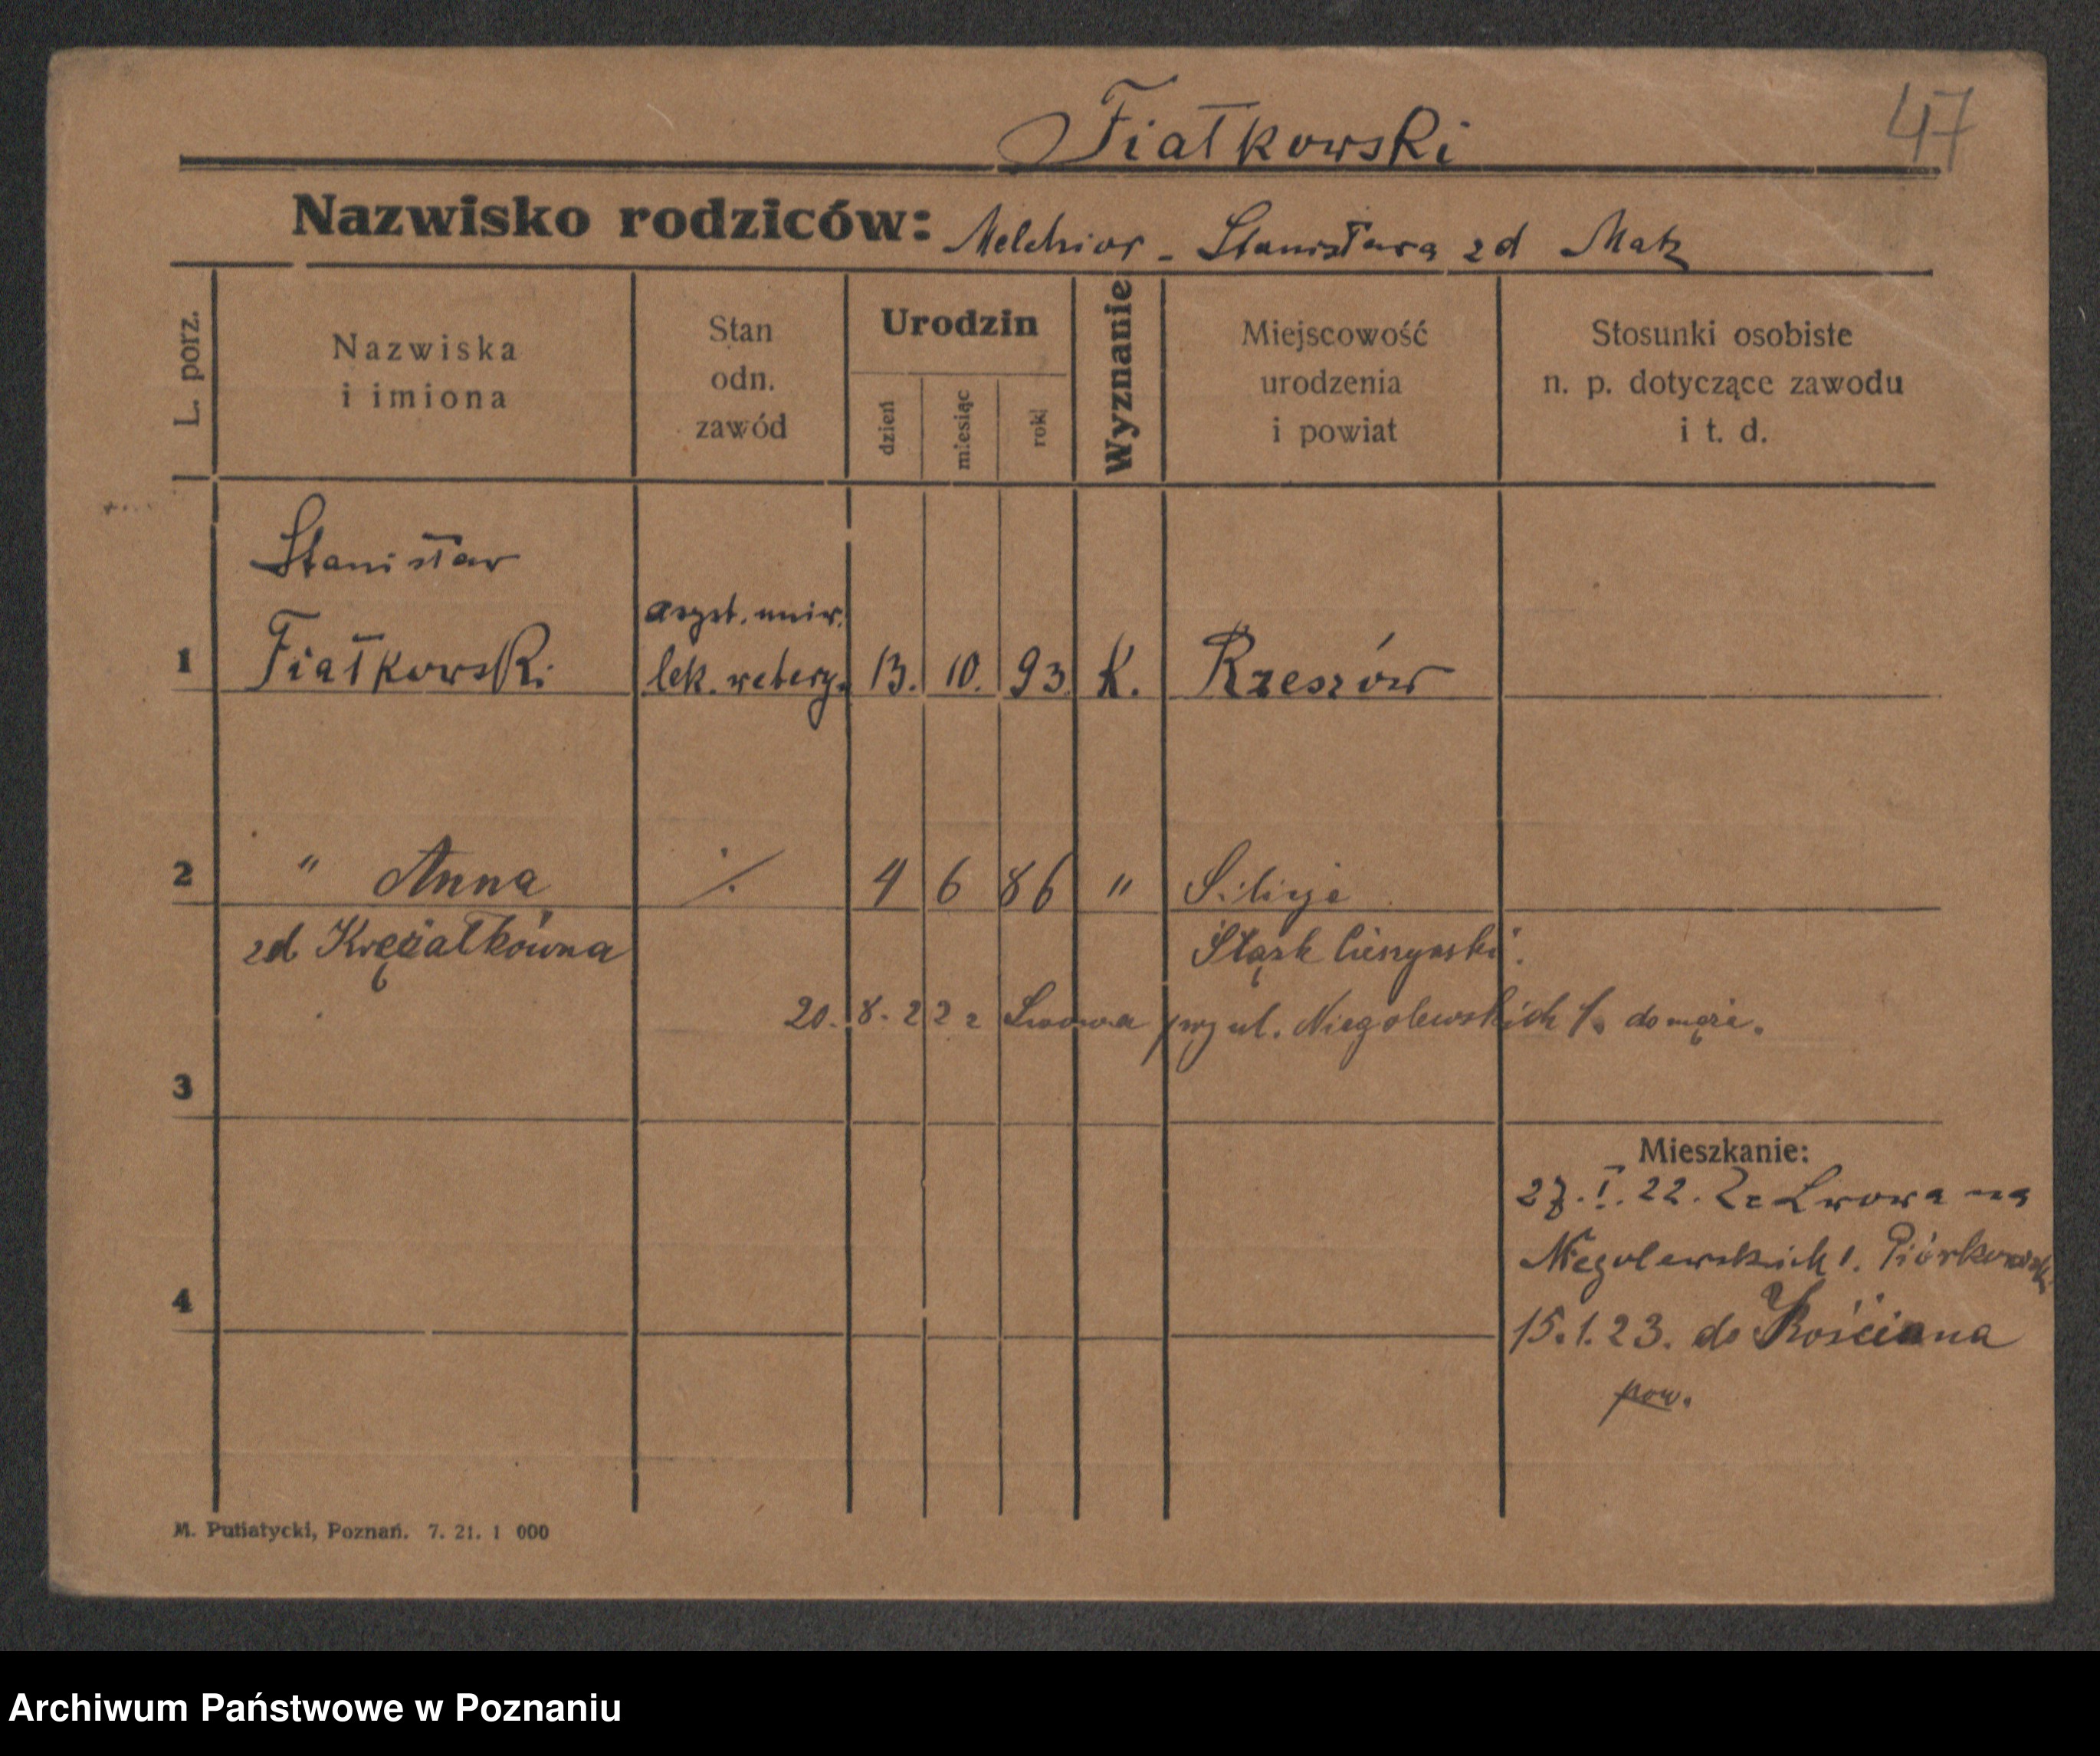 Fiałkowski
47
Nazwisko rodziców: Melchior - Stanisława zd Matz
L. porz.
Nazwiska i imiona
Stan odn. zawód
Urodzin
dzień
miesiąc
rok
Wyznanie
Miejscowość urodzenia i powiat
Stosunki osobiste n. p. dotyczące zawodu i t. d.
Stanisław
asyst. uniw.
1 Fiałkowski lek. weteryn. 13. 10. 93. K. Rzeszów
2 " Anna ./. 4 6 86 "
zd Krężałkówna Śląsk Cieszyński.
20. 8. 22 z Lwowa przy ul. Niegolewskich 1. do męża.
3
Mieszkanie:
27. I. 22. Ze Lwowa na
Niegolewskich 1.
4
15. 1. 23. do Kościana
pow.
M. Putiatycki, Poznań. 7. 21. 1 000
Archiwum Państwowe w Poznaniu